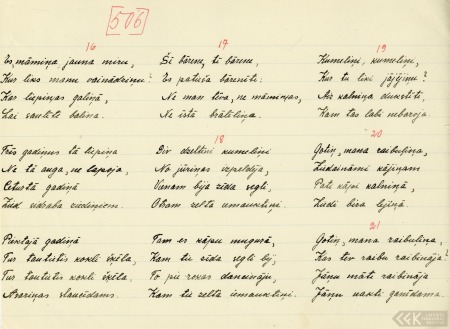 506
16
Es, māmiņa, jauna miru,
Kur liks manu vainadziņu?
Kas liepiņas galiņā,
Lai saulīte balina.
Trīs gadiņus tā liepiņa
Ne tā auga, ne lapoja,
Ceturtā gadiņā
Zied sidraba ziediņiem.
Piektajā gadiņā
Tur tautietis
Tur tautietis
slaucīdams.
17
Šī bārene, tā bārene,
Es patuša bārenīte:
Ne man tēva, ne māmiņas,
Ne īstā brālētiņa.
18
Div dzelteni kumeliņi
No jūriņas izpeldēja,
Vienam bija zīda segli,
Otram zelta iemauktiņi.
Tam es kāpu mugurā,
Kam tie zīda segli bij,
To pie rokas dancināju,
Kam tie zelta iemauktiņi.
19
Kumeliņi, kumeliņi,
Kur tu liki jājējiņu?
Aiz kalniņa
Kam tas labi nebaroja.
20
Gotiņ, mana raibuliņa,
kājiņam
Pate kāpa kalniņā,
Ziedi bira lejiņā.
21
Gotiņ, mana raibuliņa,
Kas tev raibu raibināja?
Jāņu māte raibināja
Jāņu nakti ganīdama.